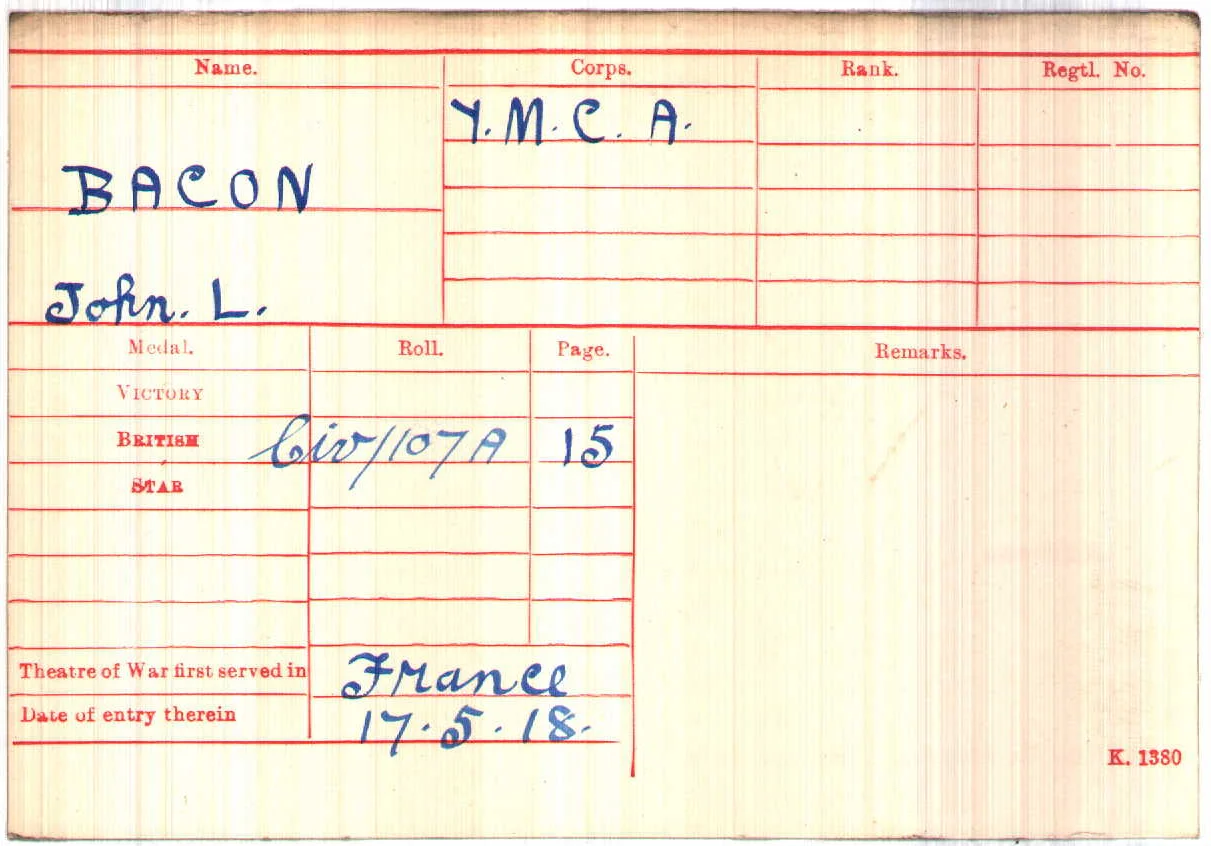 Name. Corps. Rank. Regtl. No.
Y. M. C. A.
BACON
John. L.
Medal. Roll. Page. Remarks.
VICTORY
BRITISH Civ/107A 15
STAR
Theatre of War first served in France
Date of entry therein 17.5.18.
K. 1380